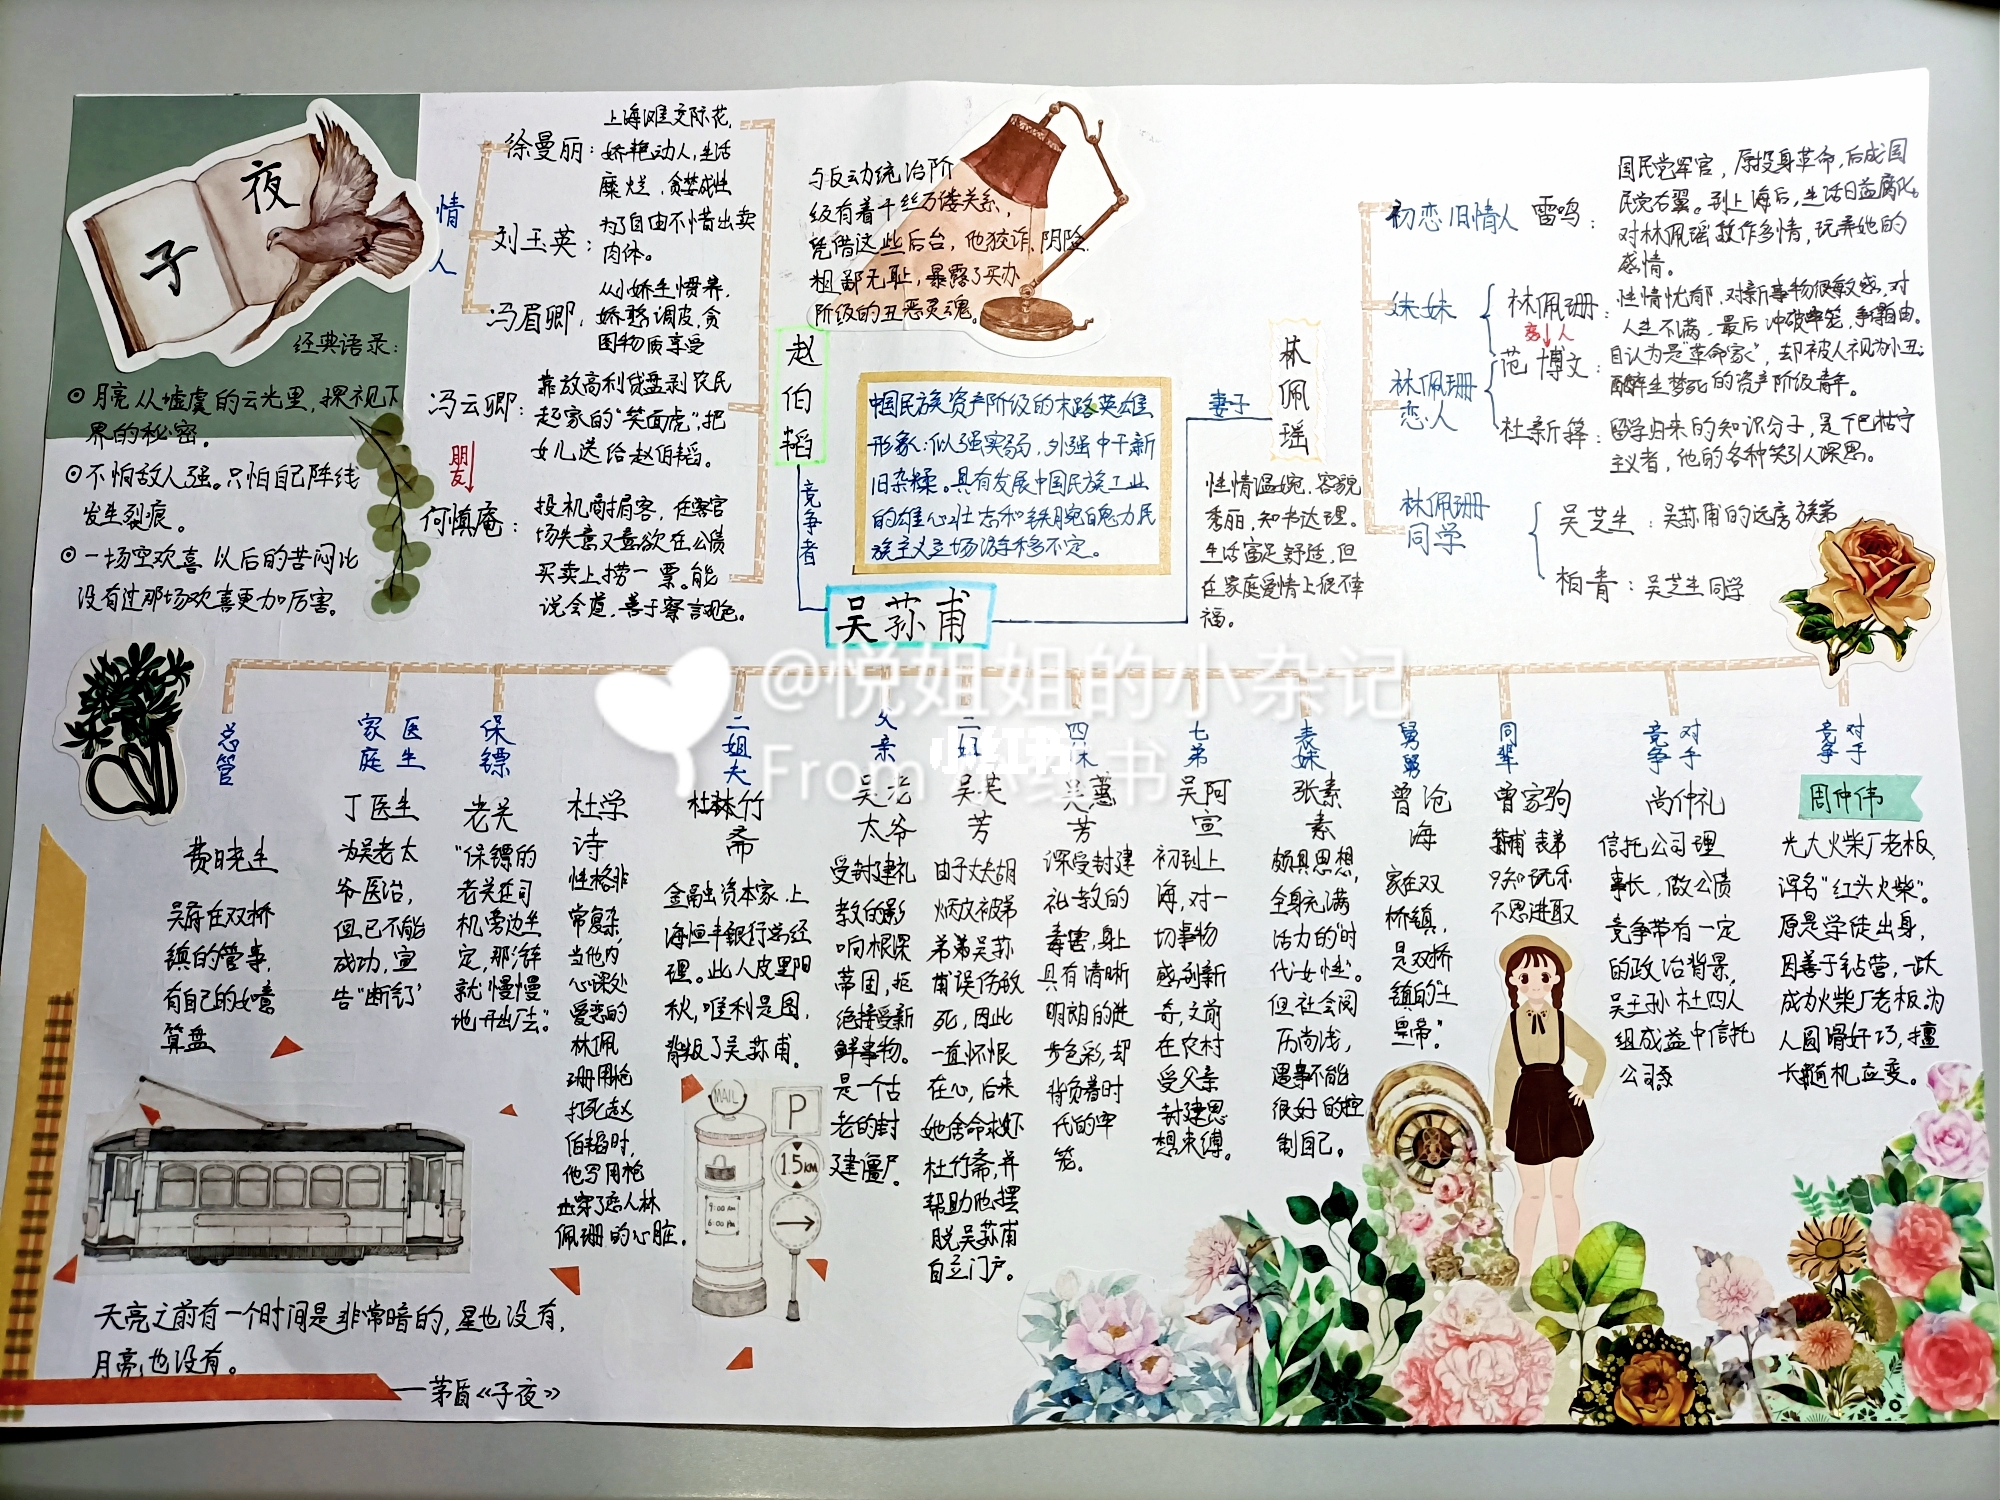 子
夜
经典语录：
⊙月亮从墟虞的云光里，探视下
界的秘密。
⊙不怕敌人强。只怕自己阵线
发生裂痕。
⊙一场空欢喜以后的苦闷比
没有过那场欢喜更加厉害。
情人
徐曼丽：
上海滩交际花，
娇艳动人，生活
糜烂，贪婪成性
刘玉英：
为了自由不惜出卖
肉体。
冯眉卿：
从小娇生惯养，
娇憨调皮，贪
图物质享受
冯云卿：
靠放高利贷盘剥农民
起家的"笑面虎"，把
女儿送给赵伯韬。
朋友
何慎庵：
投机商掮客，在
场失意又喜欲在公债
买卖上捞一票。能
说会道，善于察言观色。
与反动统治阶
级有着千丝万缕关系，
凭借这些后台，他狡诈，阴险
粗鄙无耻，暴露了买办
阶级的丑恶灵魂。
赵伯韬
竞争者
中国民族资产阶级的末路英雄
形象：似强实弱，外强中干新
旧杂糅。具有发展中国民族工业
的雄心壮志和铁腕魄力民
族主义立场游移不定。
吴荪甫
妻子
林佩瑶
性情温婉，容貌
秀丽，知书达理。
生活富足舒适，但
在家庭爱情上很不幸
福。
初恋旧情人 雷鸣：
国民党军官，原投身革命，后成国
民党右翼。到上海后，生活日益腐化。
对林佩瑶故作多情，玩弄她的
感情。
妹妹
林佩珊：
性情忧郁，对新事物很敏感，对
人生不满，最后冲破牢笼，争得自由。
林佩珊
恋人
范博文：
自认为是"革命家"，却被人视为小丑；
醉生梦死的资产阶级青年。
杜新箨：
留学归来的知识分子，是个巴枯宁
主义者，他的各种笑引人深思。
林佩珊
同学
吴芝生：吴荪甫的远房族弟
柏青：吴芝生同学
@悦姐姐的小杂记
From 小红书
总管
费晓生
吴府在双桥
镇的管事，
有自己的如意
算盘
家庭医生
丁医生
为吴老太
爷医治，
但已不能
成功，宣
告"断气"
保镖
老关
"保镖的
老关在司
机旁边坐
定，那汽车
就慢慢
地开出厂去"。
杜学
诗
性格非
常复杂，
当他内
心深处
爱恋的
林佩
珊用枪
打死赵
伯韬时，
他写用枪
击穿了恋人林
佩珊的心脏。
二姐夫
杜竹
斋
金融资本家，上
海恒丰银行总经
理。此人皮里阳
秋，唯利是图，
背叛了吴荪甫。
父亲
吴老
太爷
受封建礼
教的影
响根深
蒂固，拒
绝接受新
鲜事物。
是一个古
老的封
建僵尸。
二姐
吴英
芳
由于丈夫胡
炳文被弟
弟弟吴荪
甫误伤致
死，因此
一直怀恨
在心，后来
她舍命求处
杜竹斋，并
帮助他摆
脱吴荪甫
自立门户。
四妹
吴蕙
芳
深受封建
礼教的
毒害，身上
具有清晰
明朗的进
步色彩，却
背负着时
代的牢
笼。
七弟
吴阿
宣
初到上
海，对一
切事物
感到新
奇，之前
在农村
受父亲
封建思
想束缚。
表妹
张素
素
颇具思想，
全身充满
活力的"时
代女性"。
但社会阅
历尚浅，
遇事不能
很好的控
制自己。
舅舅
曾沧
海
家在双
桥镇，
是双桥
镇的"土
皇帝"
同辈
曾家驹
荪甫表弟
只知玩乐
不思进取
竞争对手
尚仲礼
信托公司理
事长，做公债
竞争带有一定
的政治背景，
吴王孙杜四人
组成益中信托
公司
竞争对手
周仲伟
光大火柴厂老板，
诨名"红头火柴"。
原是学徒出身，
因善于钻营，一跃
成为火柴厂老板为
人圆滑奸巧，擅
长随机应变。
MAIL
9:00 AM
6:00 PM
P
1.5KM
天亮之前有一个时间是非常暗的，星也没有，
月亮也没有。
——茅盾《子夜》